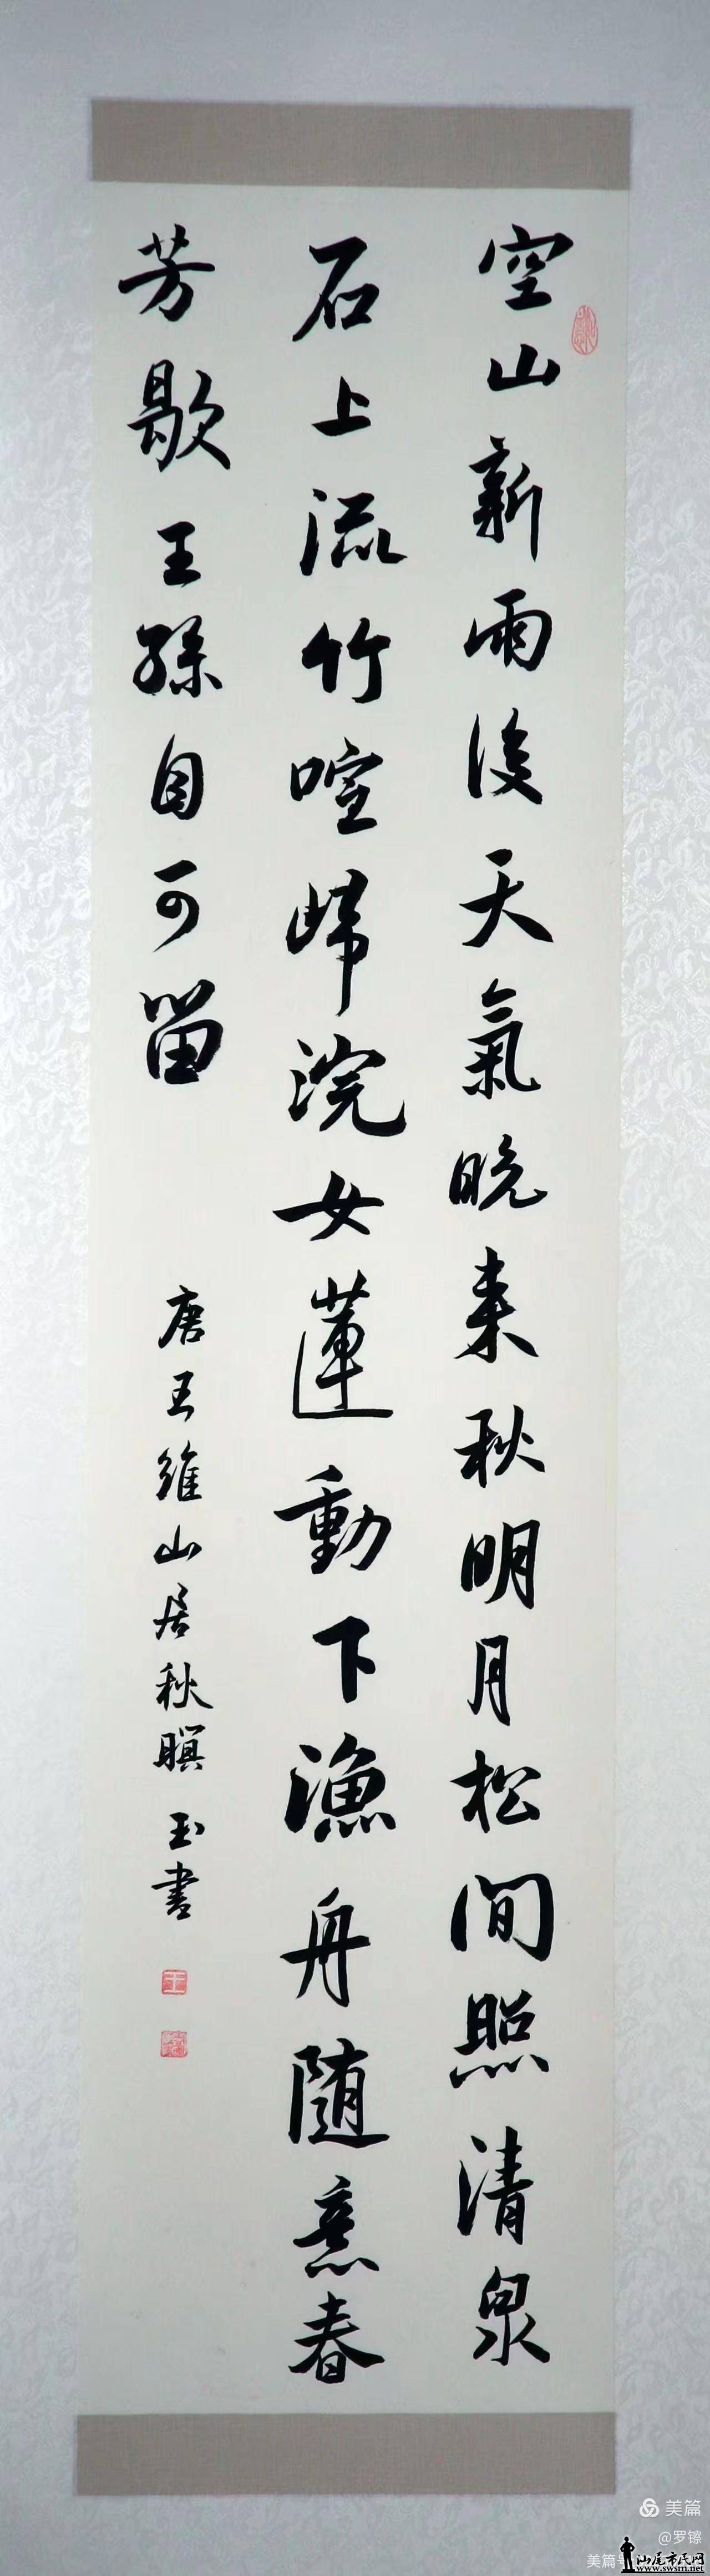 空山新雨後天氣晚来秋明月松間照清泉
石上流竹喧歸浣女蓮動下漁舟隨意春
芳歇王孫自可留
唐王維山居秋暝 玉書
美篇
@罗镲
美篇号
汕尾市民网
www.swsm.net